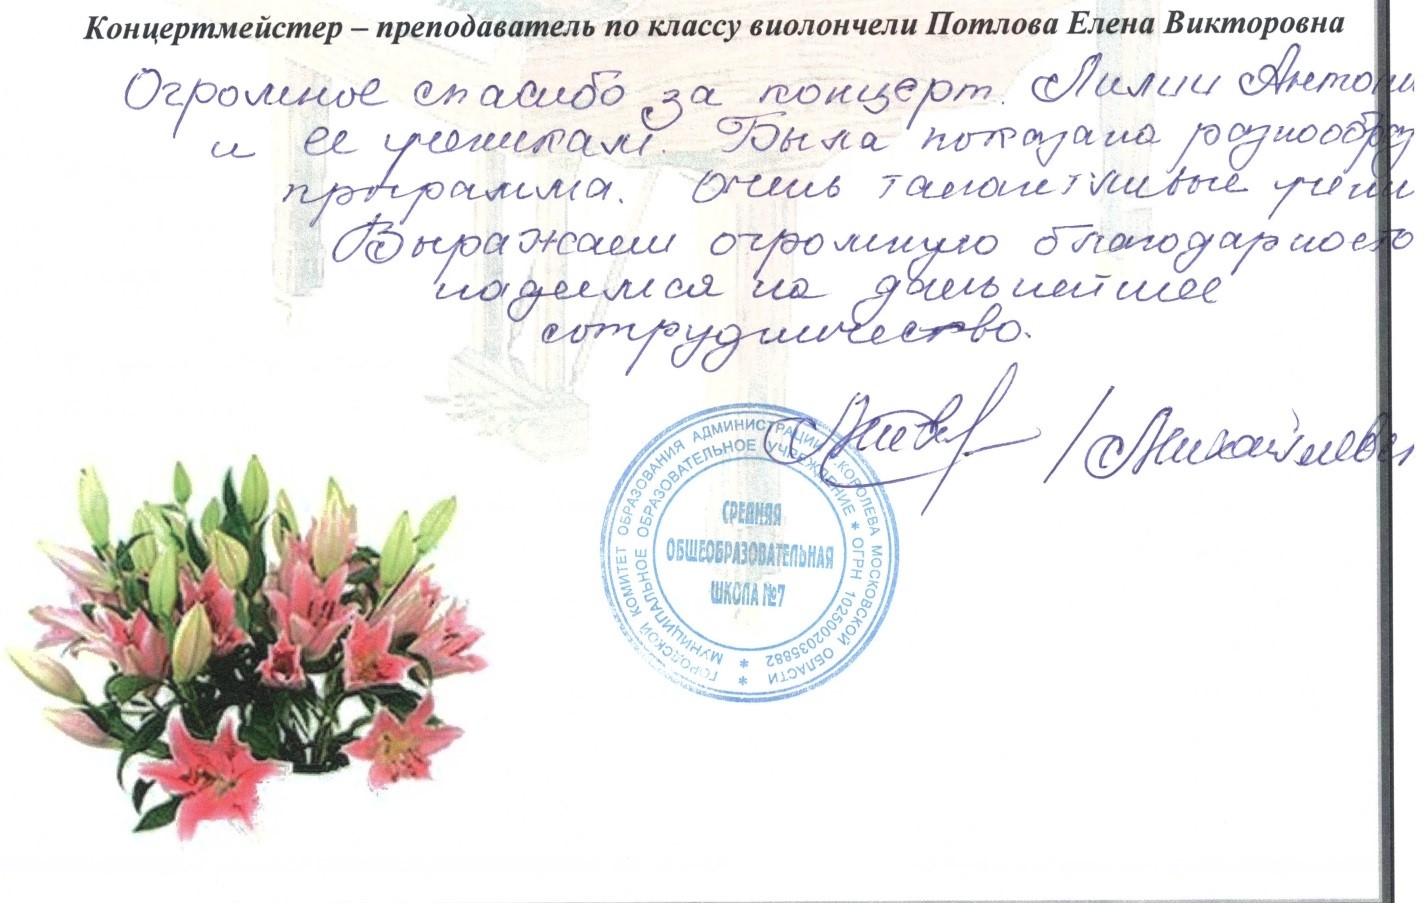 Концертмейстер – преподаватель по классу виолончели Потлова Елена Викторовна
Огромное спасибо за концерт Лилии Антони
и ее ученикам. Была показана разнообраз
программа. Очень талантливые учени
Выражаем огромную благодарность
надеемся на дальнейшее
сотрудничество.
ГОРОДСКОЙ КОМИТЕТ ОБРАЗОВАНИЯ АДМИНИСТРАЦИИ Г.КОРОЛЕВА МОСКОВСКОЙ ОБЛАСТИ *
МУНИЦИПАЛЬНОЕ ОБРАЗОВАТЕЛЬНОЕ УЧРЕЖДЕНИЕ * ОГРН 1025002035882 *
СРЕДНЯЯ
ОБЩЕОБРАЗОВАТЕЛЬНАЯ
ШКОЛА №7